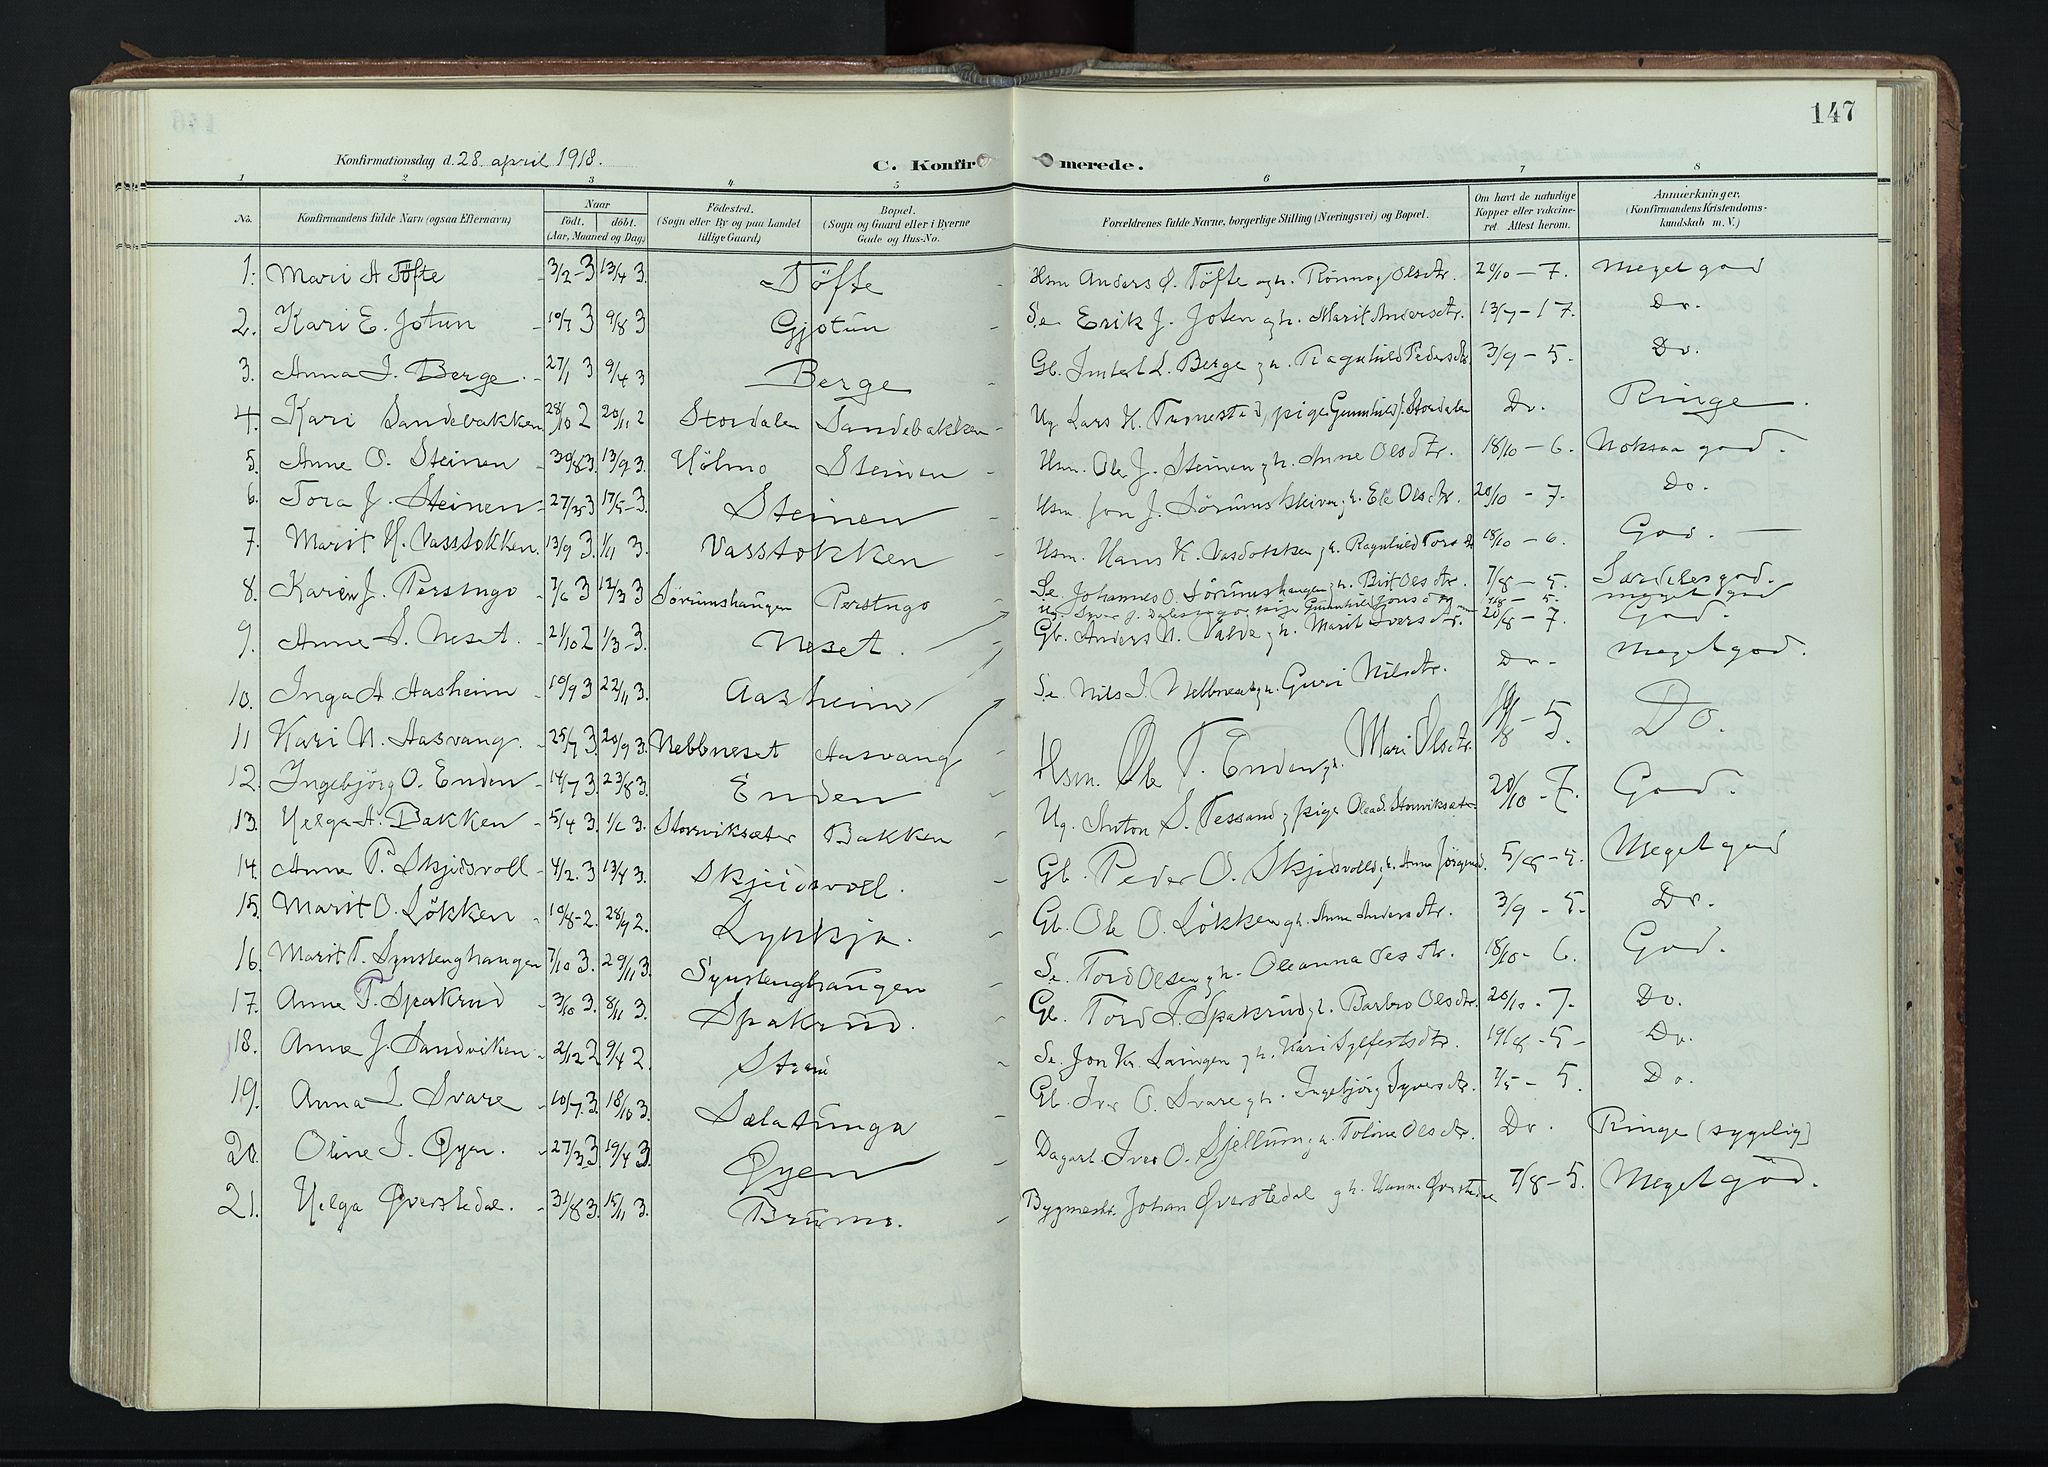 147
Konfirmationsdag d. 28. april 1918.
C. Konfirmerede.
1 2 3 4 5 6 7 8
No. Konfirmandens fulde Navn (ogsaa Efternavn) Naar født. døbt. (Aar, Maaned og Dag) Fødested. (Sogn eller By og paa Landet tillige Gaard) Bopæl. (Sogn og Gaard eller i Byerne Gade og Hus-No. Forældrenes fulde Navne, borgerlige Stilling (Næringsvei) og Bopæl. Om havt de naturlige Kopper eller vaccineret. Attest herom. Anmærkninger. (Konfirmandens Kristendomskundskab m. V.)
1. Mari A Töfte 3/2-3 13/4 3. Töfte Hsm Anders O. Töfte og h. Rönnog Olsdtr. 20/10-7. Meget god
2. Kari E. Jotun 10/7 3 9/8 3 Gjotun Se. Erik J. Joten g h. Marit Andersdtr. 13/7-17. Do.
3. Anna I. Berge. 27/1 3 9/4 3 Berge Gb. Imbert L. Berge g h. Ragnhild Pedersdtr. 3/9-5. Do.
4. Kari Sandebakken 28/10 2 20/11 2 Stordalen Sandebakken Ug. Lars H. Tronestad, pige Gunnhild J. Stordalen Do. Ringe.
5. Anne O. Steinen 30/8 3. 13/9 3. Hölmo Steinen Hsm. Ole J. Steinen g h. Anne Olsdtr. 18/10-6. Noksaa god.
6. Tora J. Steinen 27/3 3 17/5-3. Steinen Hsm. Jon J. Sörumssteinen g h. Eli Olsdtr. 20/10-7. Do.
7. Marit H. Vasstokken. 13/9 3. 1/11 3. Vasstokken Hsm. Hans K. Vasdokken g h. Ragnhild Torsdtr 18/10-6. God.
8. Karen J. Perstugo 7/6 3 12/3 3 Sörumshaugen Perstugo Se. Johannes O. Sörumshaugen g h. Brit Olsdtr. 7/8-5. Særdeles god.
meget god
9. Anne S. Neset. 21/10 2 1/3-3. Neset. Gb. Anders N. Valde g h. Marit Iversdtr. 20/8-7. God.
10. Inga A. Aasheim 10/9 3 22/11 3. Aasheim Se. Nils I. Nebbneset g h. Guri Nilsdtr. Do. Meget god.
11 Kari N. Aasvang. 25/7 3. 20/9 3. Nebbneset Aasvang
12. Ingebjörg O. Enden 14/7 3. 23/8 3. Enden Hsm. Ole T. Enden g h. Mari Olsdtr. 19/8-5. Do.
13. Helga A. Bakken 5/4 3. 1/6 3. Storviksæter Bakken Ug. Anton S. Tessand g pige Olea J. Storviksæter 20/10-7. God.
14. Anne P. Skjidsvoll 4/2. 3 13/4 3. Skjeidsvoll. Gb. Peder O. Skjidsvoll g h. Anne Jörgensd. 5/8-5. Meget god
15. Marit O. Lökken 10/8-2. 28/9 2. Lykkja. Gb. Ole O. Lökken g h. Anne Andersdtr. 3/9-5. Do.
16. Marit T. Synstenghaugen 7/10 3. 29/11 3. Synstenghaugen Se. Tord Olsen g h. Oleanna Olsdtr. 18/10-6. God.
17. Anne T. Spakrud 3/10 3. 8/11 3. Spakrud. Gb. Tord I. Spakrud g h. Barbro Olsdtr. 20/10-7. Do.
18. Anne J. Sandviken 2/12 2 9/4 2. Strand Se. Jon Kr. Laingen g h. Kari Sylfestsdtr. 19/8-5- Do.
19. Anna I. Svare 10/7 3. 18/10 3. Sælatunga Gb. Iver O. Svare g h. Ingebjörg Syversdtr. 7/5-5. Do.
20. Oline I. Øyen. 27/3 3 19/4 3 Øyen Dagarb. Iver O. Sjellum g h. Toline Olsdtr. Do. Ringe (sygelig)
21. Helga Øverstedal. 31/8 3. 15/11 3. Brumo. Bygmester Johan Øverstedal g h. Hanna Øverstedal 7/8-5. Meget god.